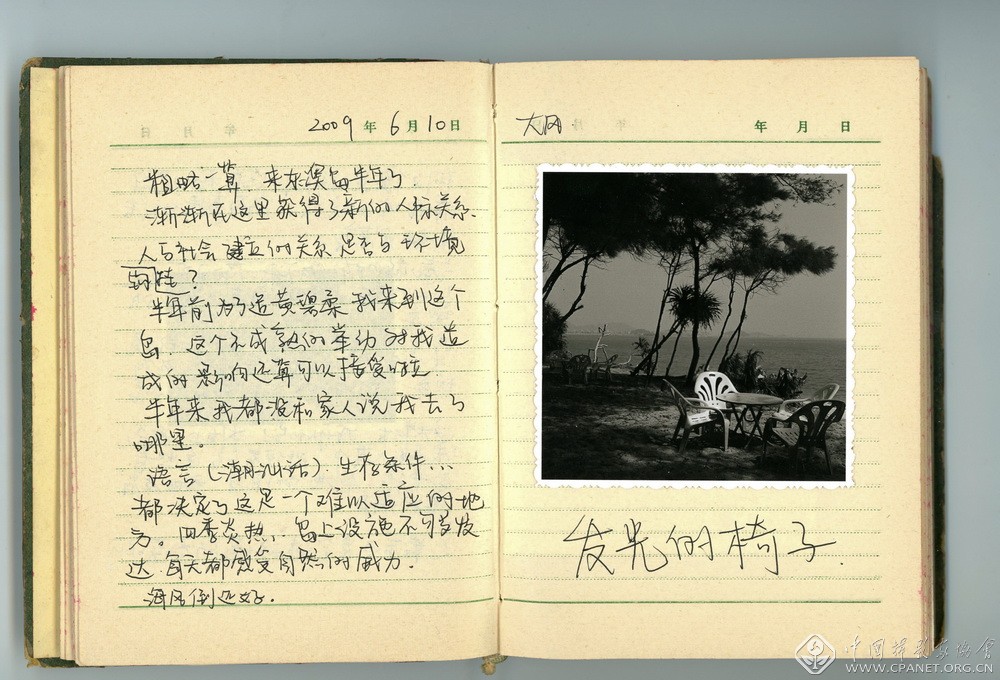 2009年6月10日
粗略一算 来东澳岛半年了.
渐渐在这里获得了新的人际关系.
人与社会建立的关系是否与环境
钩挂?
半年前为了追黄碧柔 我来到这个
岛. 这个不成熟的举动对我造
成的影响还算可以接受啦.
半年来我都没和家人说我去了
哪里。
语言(潮汕话). 生存条件...
都决定了这是一个难以适应的地
方。四季炎热, 岛上设施不 发
达. 每天都感受自然的威力.
海风倒还好.
大风.
年 月 日
发光的椅子.
中国摄影家协会
WWW.CPANET.ORG.CN